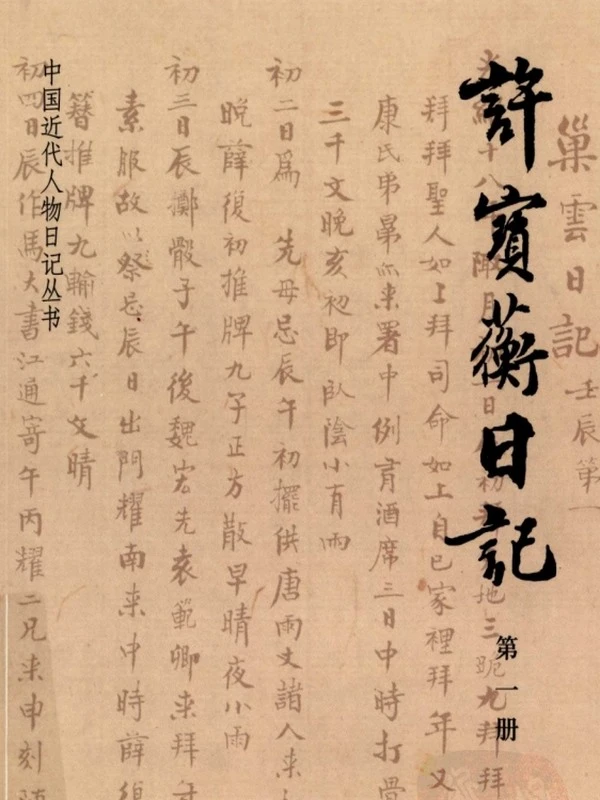 許寶蘅日記
第一册
中国近代人物日记丛书
巢雲日記 壬辰第一
拜拜聖人如上拜司命如上自已家裡拜年又
康氏弔鼻亦来署中例有酒席三日中時打骨
三千文晚亥初即卧陰小有雨
初二日爲 先母忌辰午初擺供唐雨文諸人来
晚薛復初推牌九午正方散早晴夜小雨
初三日辰擲骰子午後魏宏先袁範卿来拜年
素服故以祭忌辰日出門耀南来中時薛復
簪推牌九輸錢六千文晴
初四日辰作馬大書江通寄午丙耀二兄来申刻